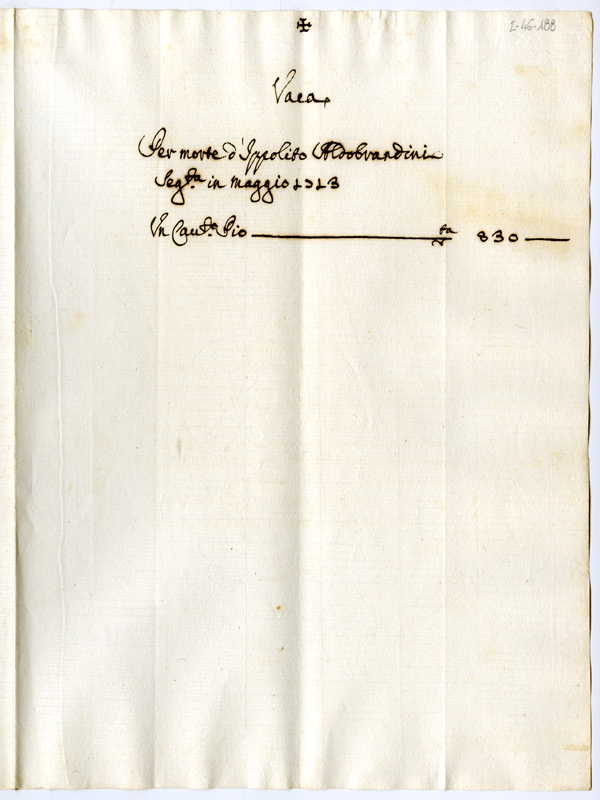 ✠
2-46-188
Vaca
Per morte d'Ippolito Aldobrandini
Seg.ta in maggio 1713
Un Cau.to Pio 830